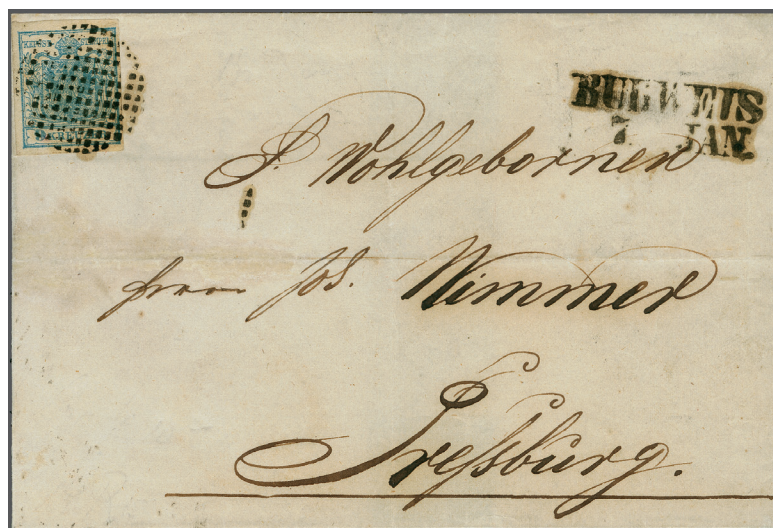 BUDWEIS
7. JAN.
S. Wohlgebornen
Herrn Jos. Nimmer
Preßburg.